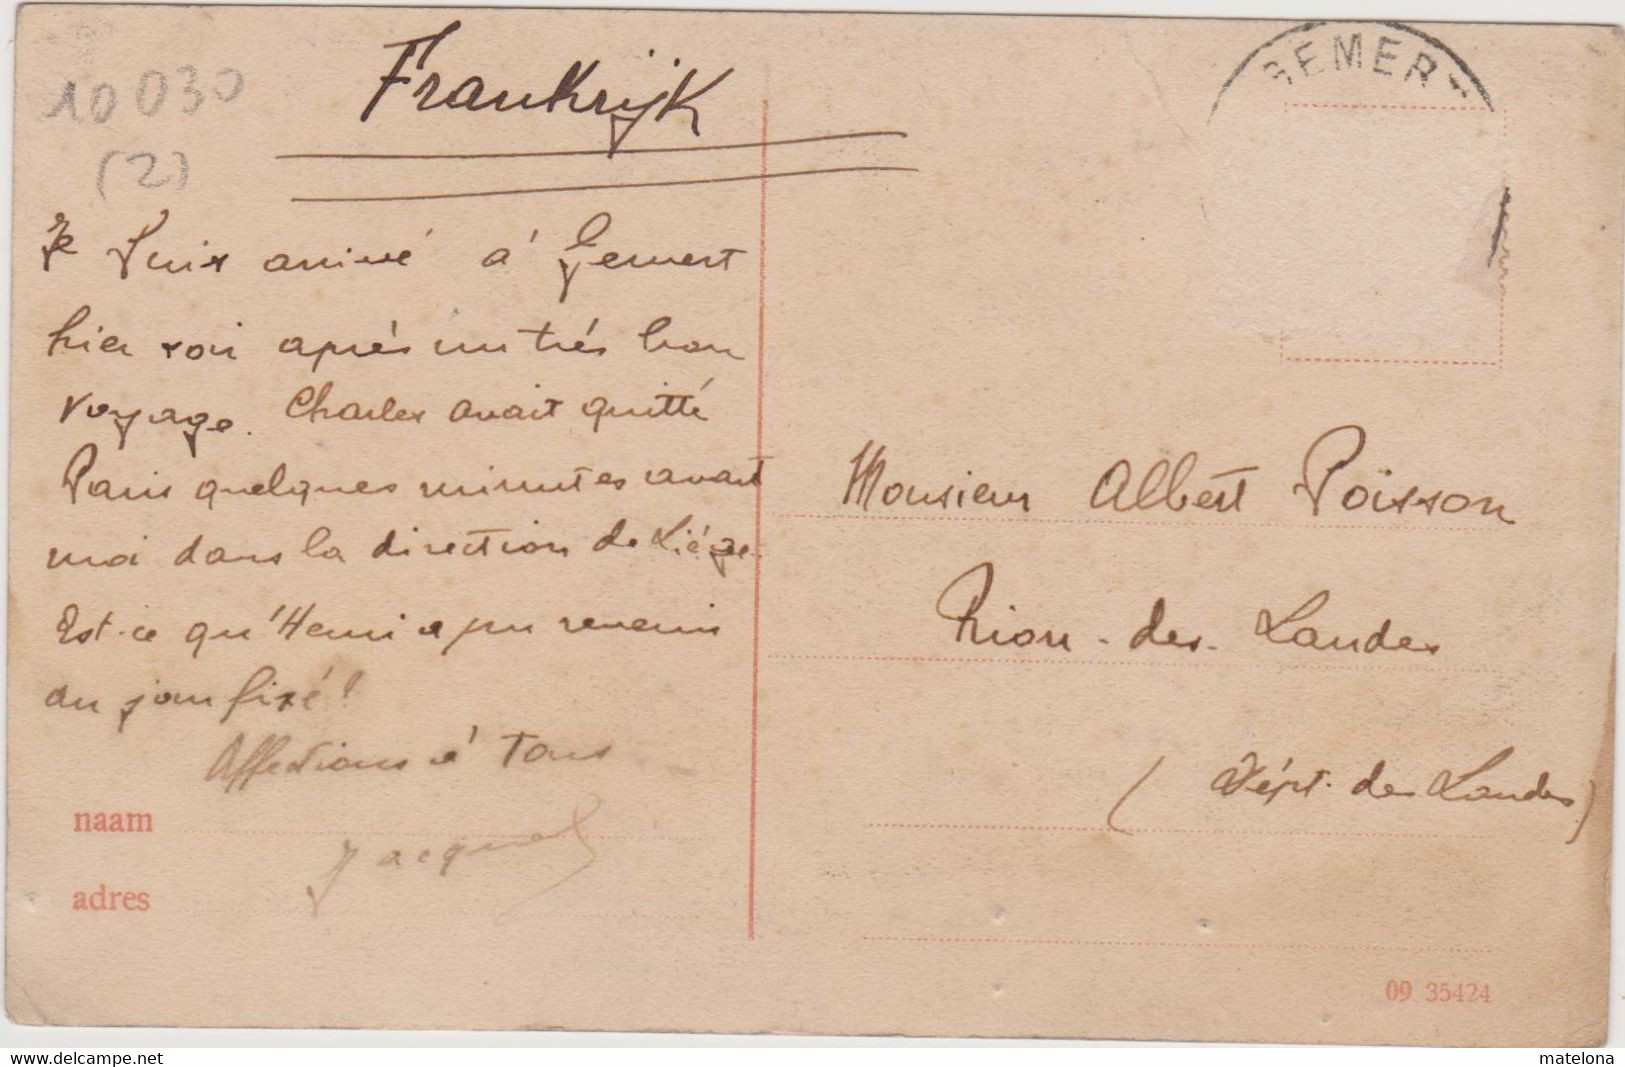 10030
(2)
Frankrijk
GEMERT
Je suis arrivé à Gemert
hier soir après un très bon
voyage. Charles avait quitté
Paris quelques minutes avant
moi dans la direction de Liège.
Est-ce qu'Henri a pu revenir
au jour fixé?
Affections à Tous
Jacques
naam
adres
Monsieur Albert Poisson
Rion-des-Landes
(Dépt. des Landes)
09 35424
www.delcampe.net
matelona